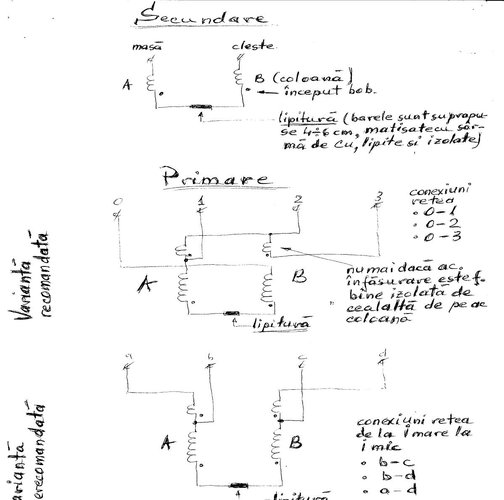 Secundare
masă
cleste
A
B (coloană)
început bob.
lipitură (barele sunt suprapu-
se 4÷6 cm, matisate cu sâr-
mă de Cu, lipite si izolate)
Primare
0 1 2 3
conexiuni
retea
• 0-1
• 0-2
• 0-3
Variantă
recomandată
A
B
numai dacă ac.
înfăsurare este f.
bine izolată de
cealaltă de pe ac
coloană
lipitură
a b c d
A
B
conexiuni retea
de la I mare la
I mic
• b-c
• b-d
• a-d